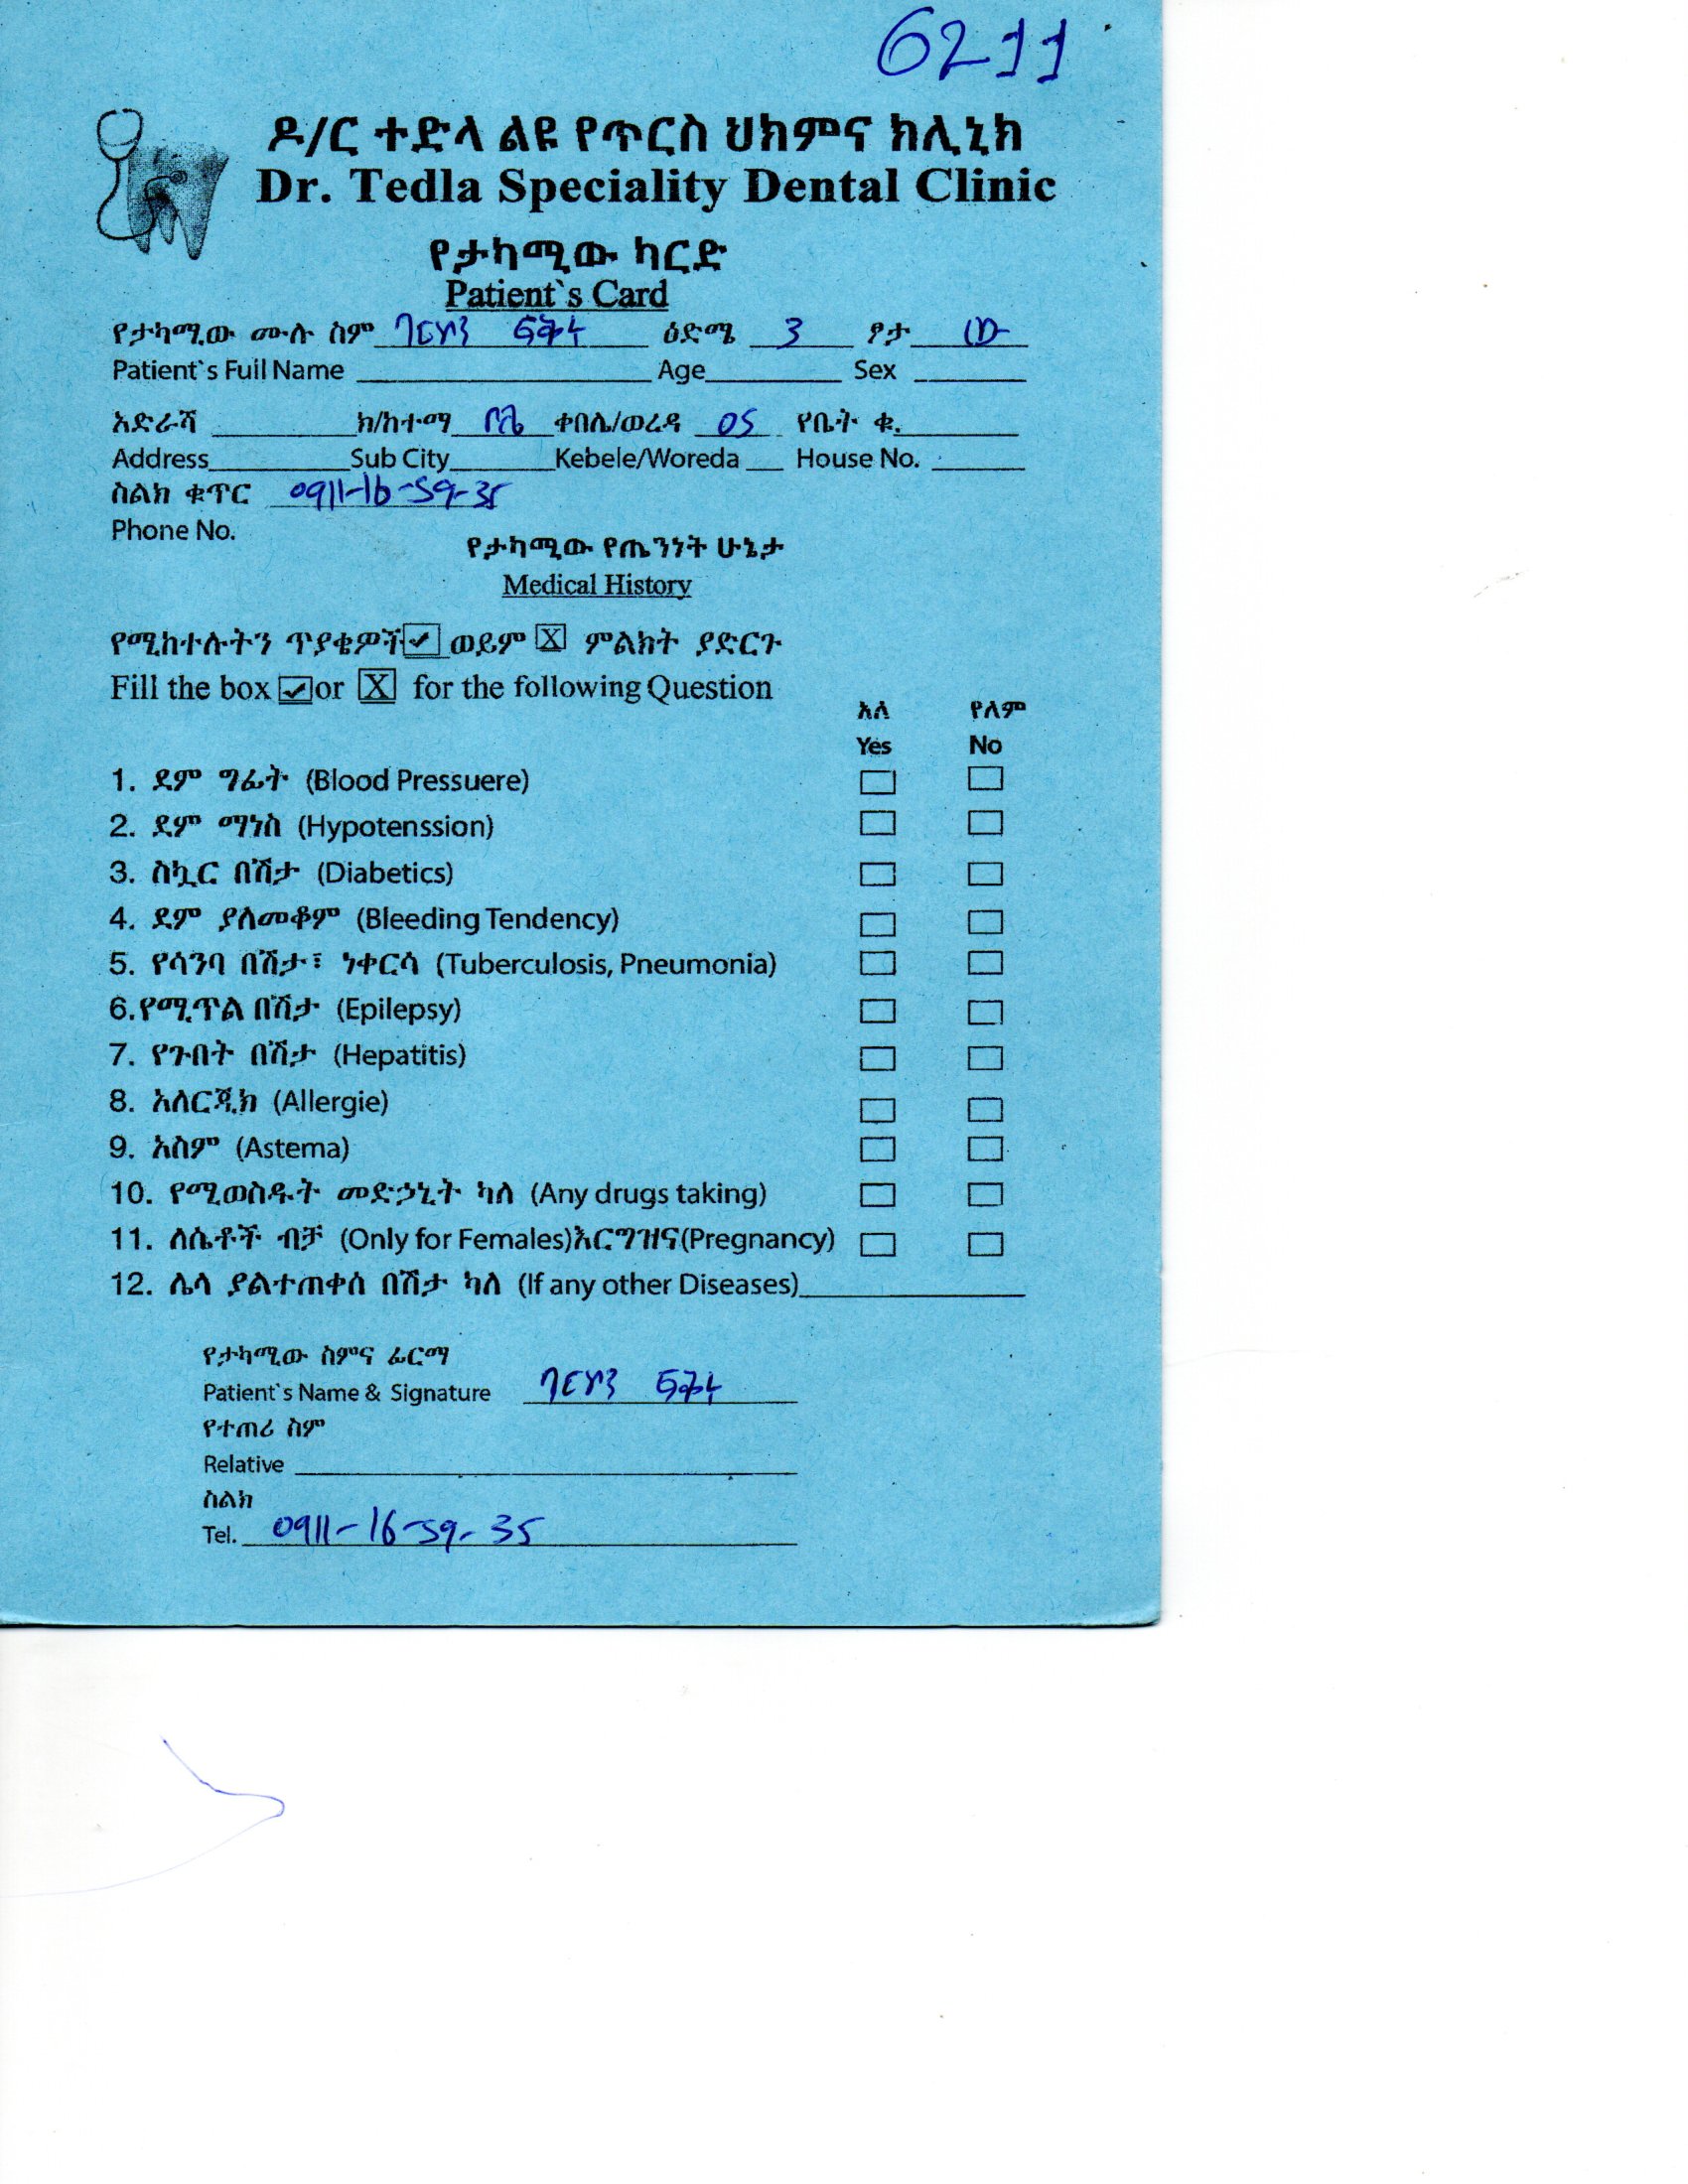 6211
ዶ/ር ተድላ ልዩ የጥርስ ህክምና ክሊኒክ
Dr. Tedla Speciality Dental Clinic
የታካሚው ካርድ
Patient`s Card
የታካሚው ሙሉ ስም ዕድሜ 3 ፆታ ወ
Patient`s Full Name Age Sex
አድራሻ ክ/ከተማ ቦሌ ቀበሌ/ወረዳ 05 የቤት ቁ.
Address Sub City Kebele/Woreda House No.
ስልክ ቁጥር 0911-16-59-35
Phone No.
የታካሚው የጤንነት ሁኔታ
Medical History
የሚከተሉትን ጥያቄዎች ✓ ወይም X ምልክት ያድርጉ
Fill the box ✓ or X for the following Question
አለ የለም
Yes No
1. ደም ግፊት (Blood Pressuere)
2. ደም ማነስ (Hypotenssion)
3. ስኳር በሽታ (Diabetics)
4. ደም ያለመቆም (Bleeding Tendency)
5. የሳንባ በሽታ፣ ነቀርሳ (Tuberculosis, Pneumonia)
6.የሚጥል በሽታ (Epilepsy)
7. የጉበት በሽታ (Hepatitis)
8. አለርጂክ (Allergie)
9. አስም (Astema)
10. የሚወስዱት መድኃኒት ካለ (Any drugs taking)
11. ለሴቶች ብቻ (Only for Females)እርግዝና(Pregnancy)
12. ሌላ ያልተጠቀሰ በሽታ ካለ (If any other Diseases)
የታካሚው ስምና ፊርማ
Patient`s Name & Signature
የተጠሪ ስም
Relative
ስልክ
Tel. 0911-16-59-35